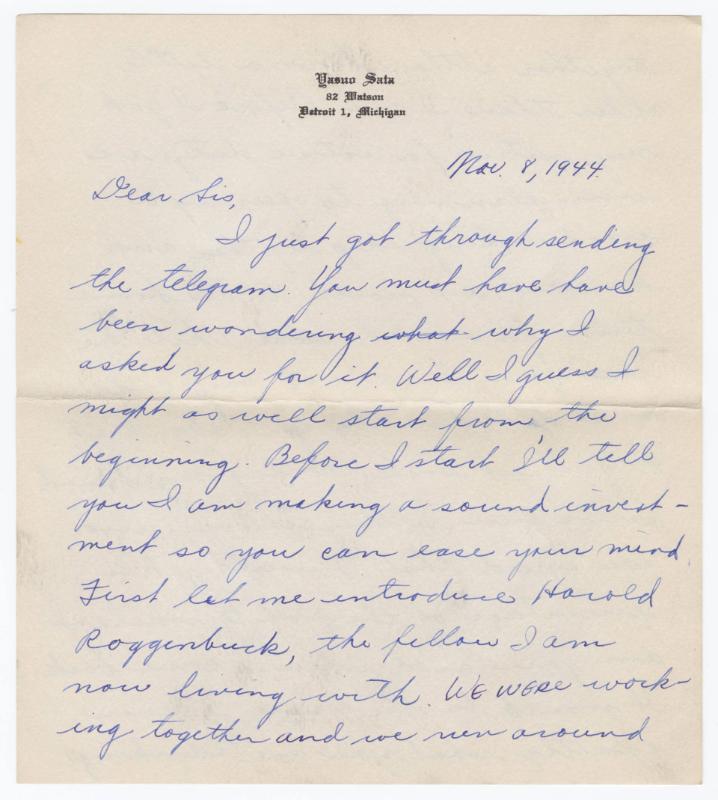 Yasuo Sata
82 Watson
Detroit 1, Michigan
Nov. 8, 1944.
Dear Sis,
I just got through sending
the telegram. You must have have
been wondering what why I
asked you for it. Well I guess I
might as well start from the
beginning. Before I start I'll tell
you I am making a sound invest-
ment so you can ease your mind.
First let me introduce Harold
Roggenbuck, the fellow I am
now living with. WE WERE work-
ing together and we run around